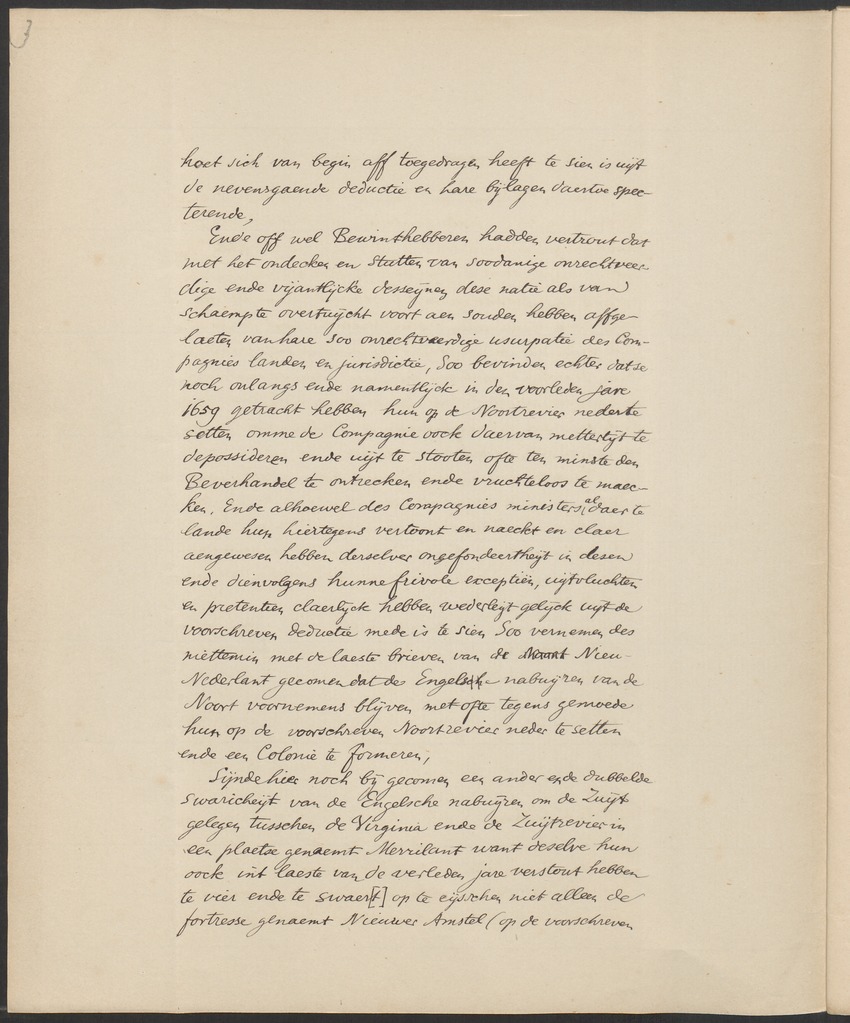 3
hoet sich van begin aff toegedragen heeft te sien is uijt
de nevensgaende deductie en hare bijlagen daertoe spec-
terende,
Ende off wel Bewinthebberen hadden vertrout dat
met het ondecken en stutten van soodanige onrechtveer-
dige ende vijantlijcke desseijnen dese natie als van
schaempte overtuijcht voort aen souden hebben affge-
laeten van hare soo onrechtveerdige usurpatie des Com-
pagnies landen en jurisdictie, Soo bevinden echter datse
noch onlangs ende namentlijck in den voorleden jare
1659 getracht hebben hun op de Noortrevier neder te
setten omme de Compagnie oock daervan mettertijt te
depossideren ende uijt te stooten ofte ten minste den
Beverhandel te ontrecken ende vruchteloos te maec-
ken. Ende alhoewel des Compagnies ministers al daer te
lande hun hiertegens vertoont en naeckt en claer
aengewesen hebben derselver ongefondeertheijt in desen
ende dienvolgens hunne frivole exceptiën, uijtvluchten
en pretentien claerlijck hebben wederleijt gelijck uijt de
voorschreven deductie mede is te sien Soo vernemen des
niettemin met de laeste brieven van de Nieu-
Nederlant gecomen dat de Engelsche nabuijren van de
Noort voornemens blijven met ofte tegens gemoede
hun op de voorschreven Noortrevier neder te setten
ende een Colonie te formeren,
Sijnde hier noch bij gecomen een ander ende dubbelde
swaricheijt van de Engelsche nabuijren om de Zuijt
gelegen tusschen de Virginia ende de Zuijtrevier in
een plaetse genaemt Merrilant want deselve hun
oock int laeste van de verleden jare verstout hebben
te vier ende te swaer[t] op te eijsschen niet alleen de
fortresse genaemt Nieuwer Amstel (op de voorschreven